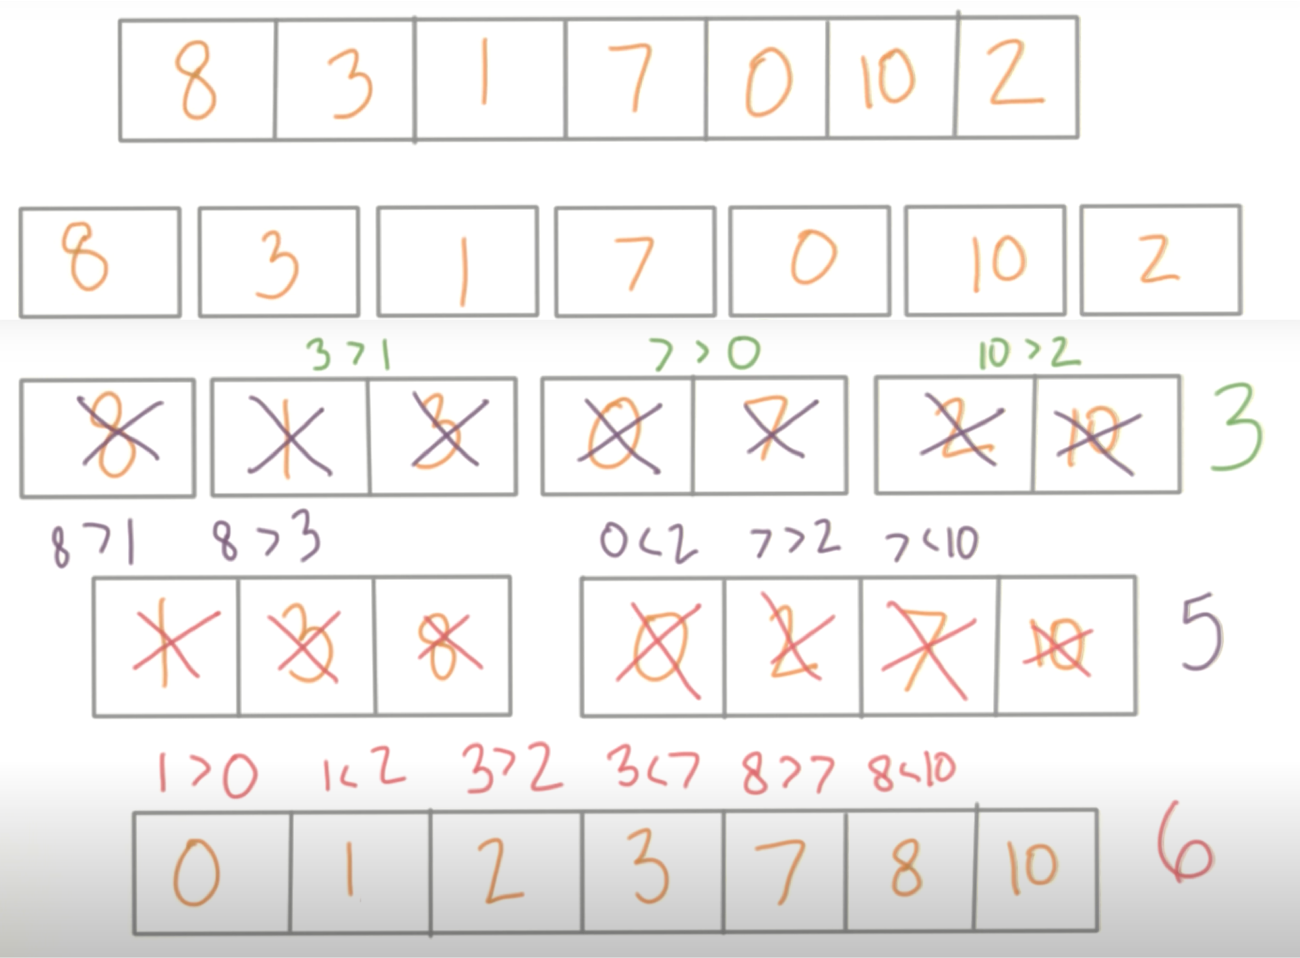 8 3 1 7 0 10 2
8 3 1 7 0 10 2
3 > 1 7 > 0 10 > 2
8 1 3 0 7 2 10 3
8 > 1 8 > 3 0 < 2 7 > 2 7 < 10
1 3 8 0 2 7 10 5
1 > 0 1 < 2 3 > 2 3 < 7 8 > 7 8 < 10
0 1 2 3 7 8 10 6